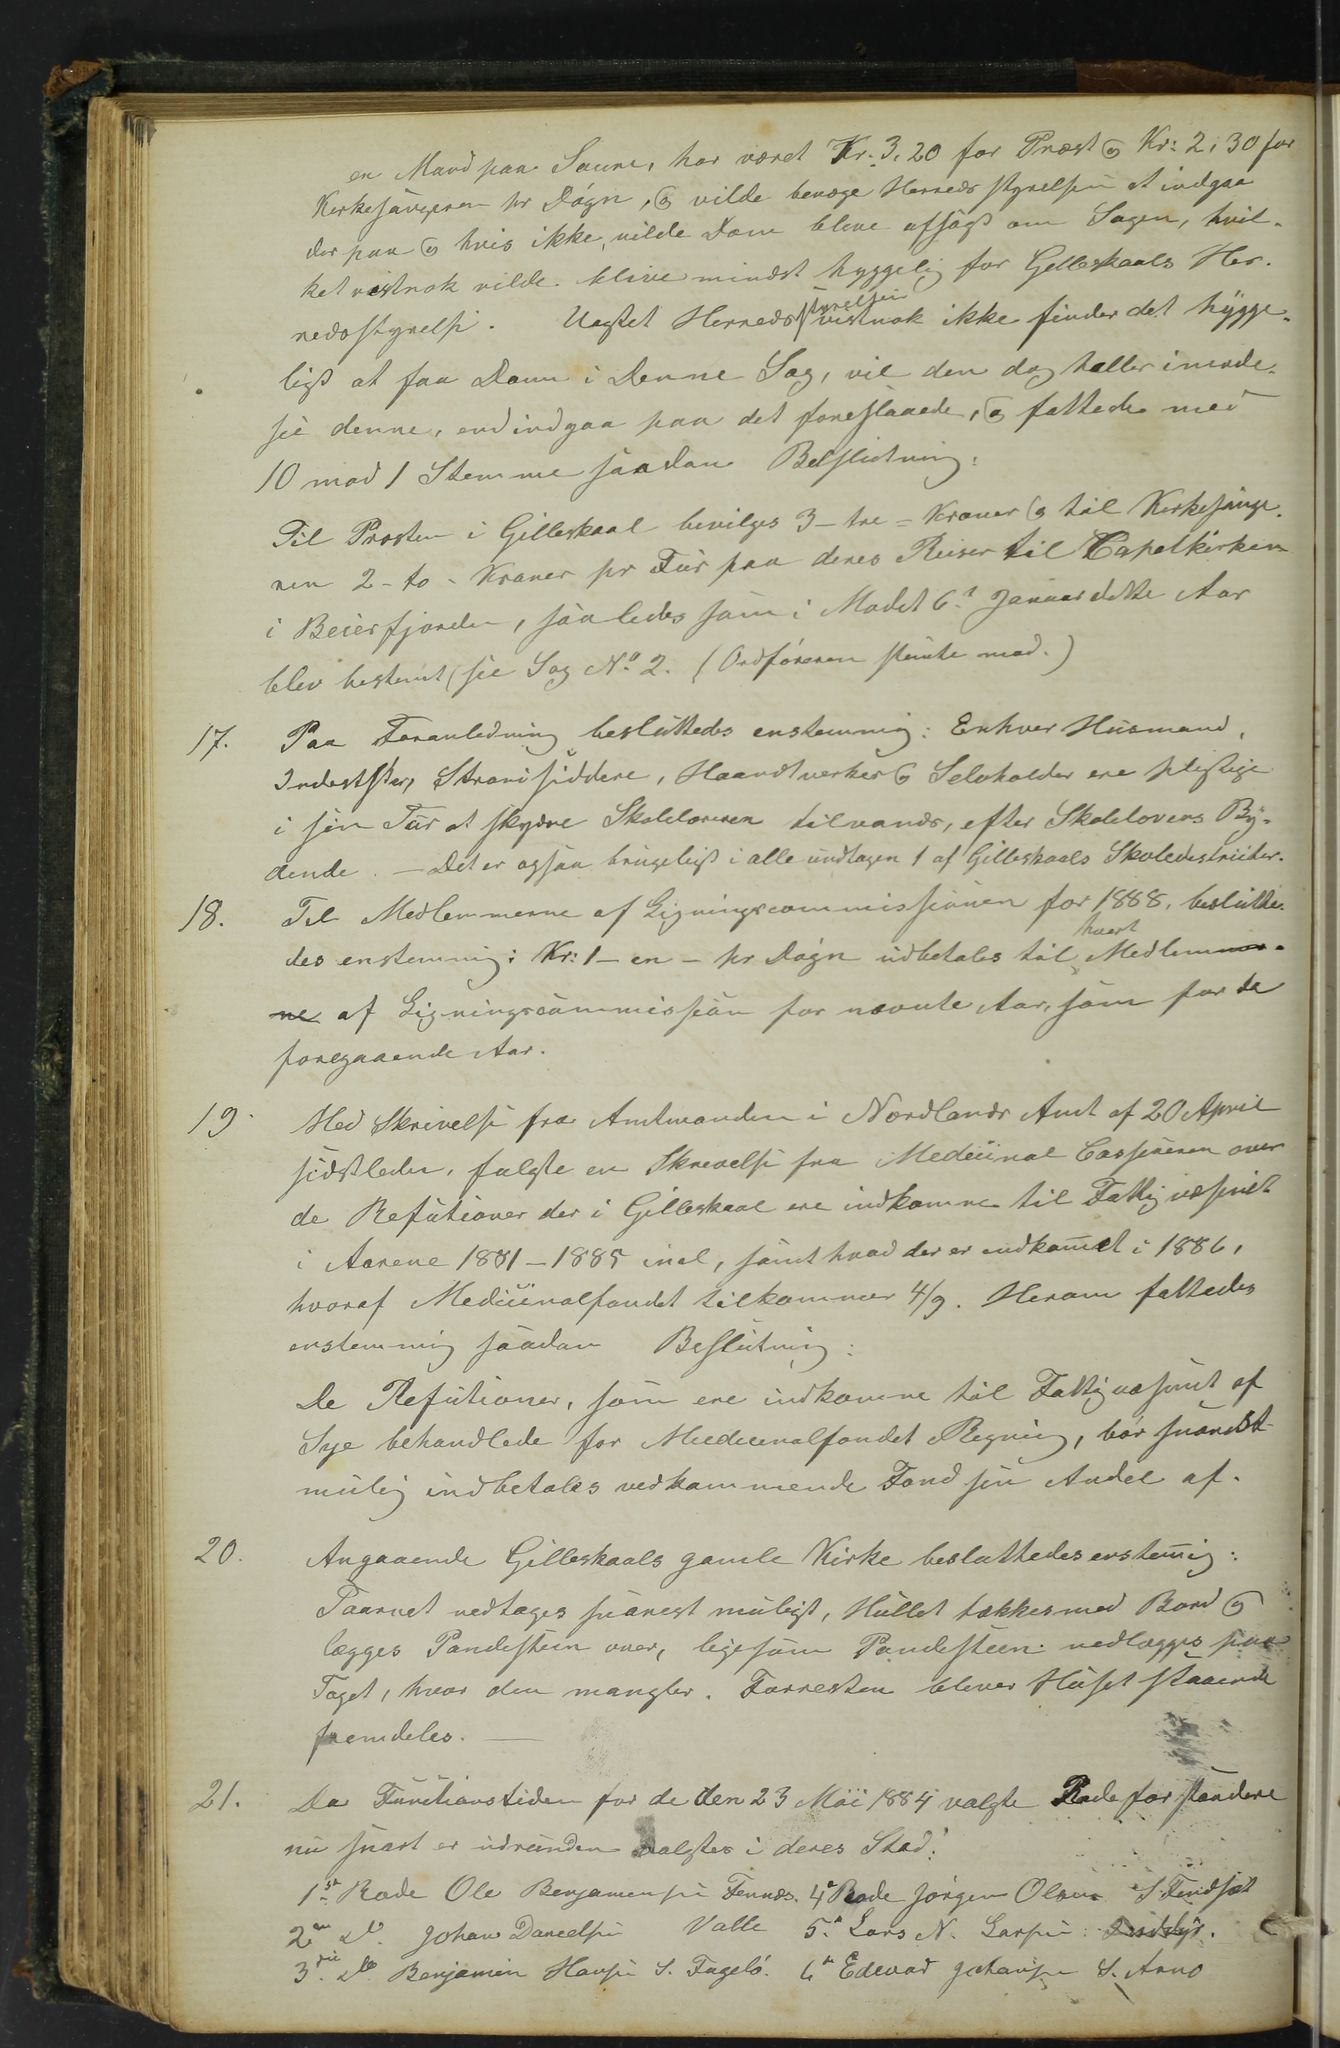 en Mand paa Saure, har været Kr. 3,20 for Præst og Kr: 2,30 for
Kirkesangeren pr Døgn, og vilde bevæge Herredsstyrelsen at indgaa
der paa og hvis ikke, vilde Dom blive afsagt om Sagen, hvil-
ket vistnok vilde blive mindst hyggelig for Gilleskaals Her-
redsstyrelse. Uagtet Herredsstyrelsen vistnok ikke finder det hygge-
ligt at faa Dom i Denne Sag, vil den dog heller imøde-
see denne, end indgaa paa det foreslaaede, og fattedes med
10 mod 1 Stemme saadan Beslutning:
Til Præsten i Gilleskaal bevilges 3 - tre - Kroner og til Kirkesange-
ren 2 - to - Kroner pr Tur paa deres Reiser til Capelkirken
i Beierfjorden, saaledes som i Mødet 6te Januar dette Aar
blev bestemt (see Sag No 2. (Ordføreren stemte mod.)
17. Paa Foranledning besluttedes enstemmig: Enhver Husmand,
Inderster, Strandsiddere, Haandverker og Selvholder ere pligtige
i sin Tur at skydse Skolelæreren tilvands, efter Skolelovens By-
dende. - Det er ogsaa brugeligt i alle undtagen 1 af Gilleskaals Skoledistricter.
18. Til Medlemmerne af Ligningscommissionen for 1888, beslutte-
des enstemmig: Kr: 1 - en - pr Døgn udbetales til hvert Medlemmer-
ne af Ligningscommission for nævnte Aar, som for de
foregaaende Aar.
19. Med Skrivelse fra Amtmanden i Nordlands Amt af 20 April
sidstleden, fulgte en Skrivelse fra Medicinal Cassereren over
de Refutioner der i Gilleskaal ere indkomne til Fattigvæsenet
i Aarene 1881 - 1885 incl, samt hvad der er indkommet i 1886,
hvoraf Medicinalfondet tilkommer 4/9. Herom fattedes
enstemmig saadan Beslutning:
De Refutioner, som ere indkomne til Fattigvæsenet af
Syge behandlede for Medicinalfondet Regning, bør snarest
mulig indbetales vedkommende Fond sin Andel af.
20. Angaaende Gilleskaals gamle Kirke besluttedes enstemmig:
Taarnet nedtages snarest muligt, Hullet tækkes med Bord og
lægges Pandesteen over, ligesom Pandesteen nedlægges paa
Taget, hvor den mangler. Forresten bliver Huset staaende
fremdeles.
21. Da Functionstiden for de den 23 Mai 1884 valgte Rodeforstandere
nu snart er udrunden valgtes i deres Sted:
1ste Rode Ole Benjaminsen Fennes. 4de Rode Jørgen Olsen S. Findset
2den Do Johan Danielsen Valle 5te Lars N. Larsen
3die Do Benjamin Hansen S. Fugelø. 6te Edevard Johansen S. Arnø